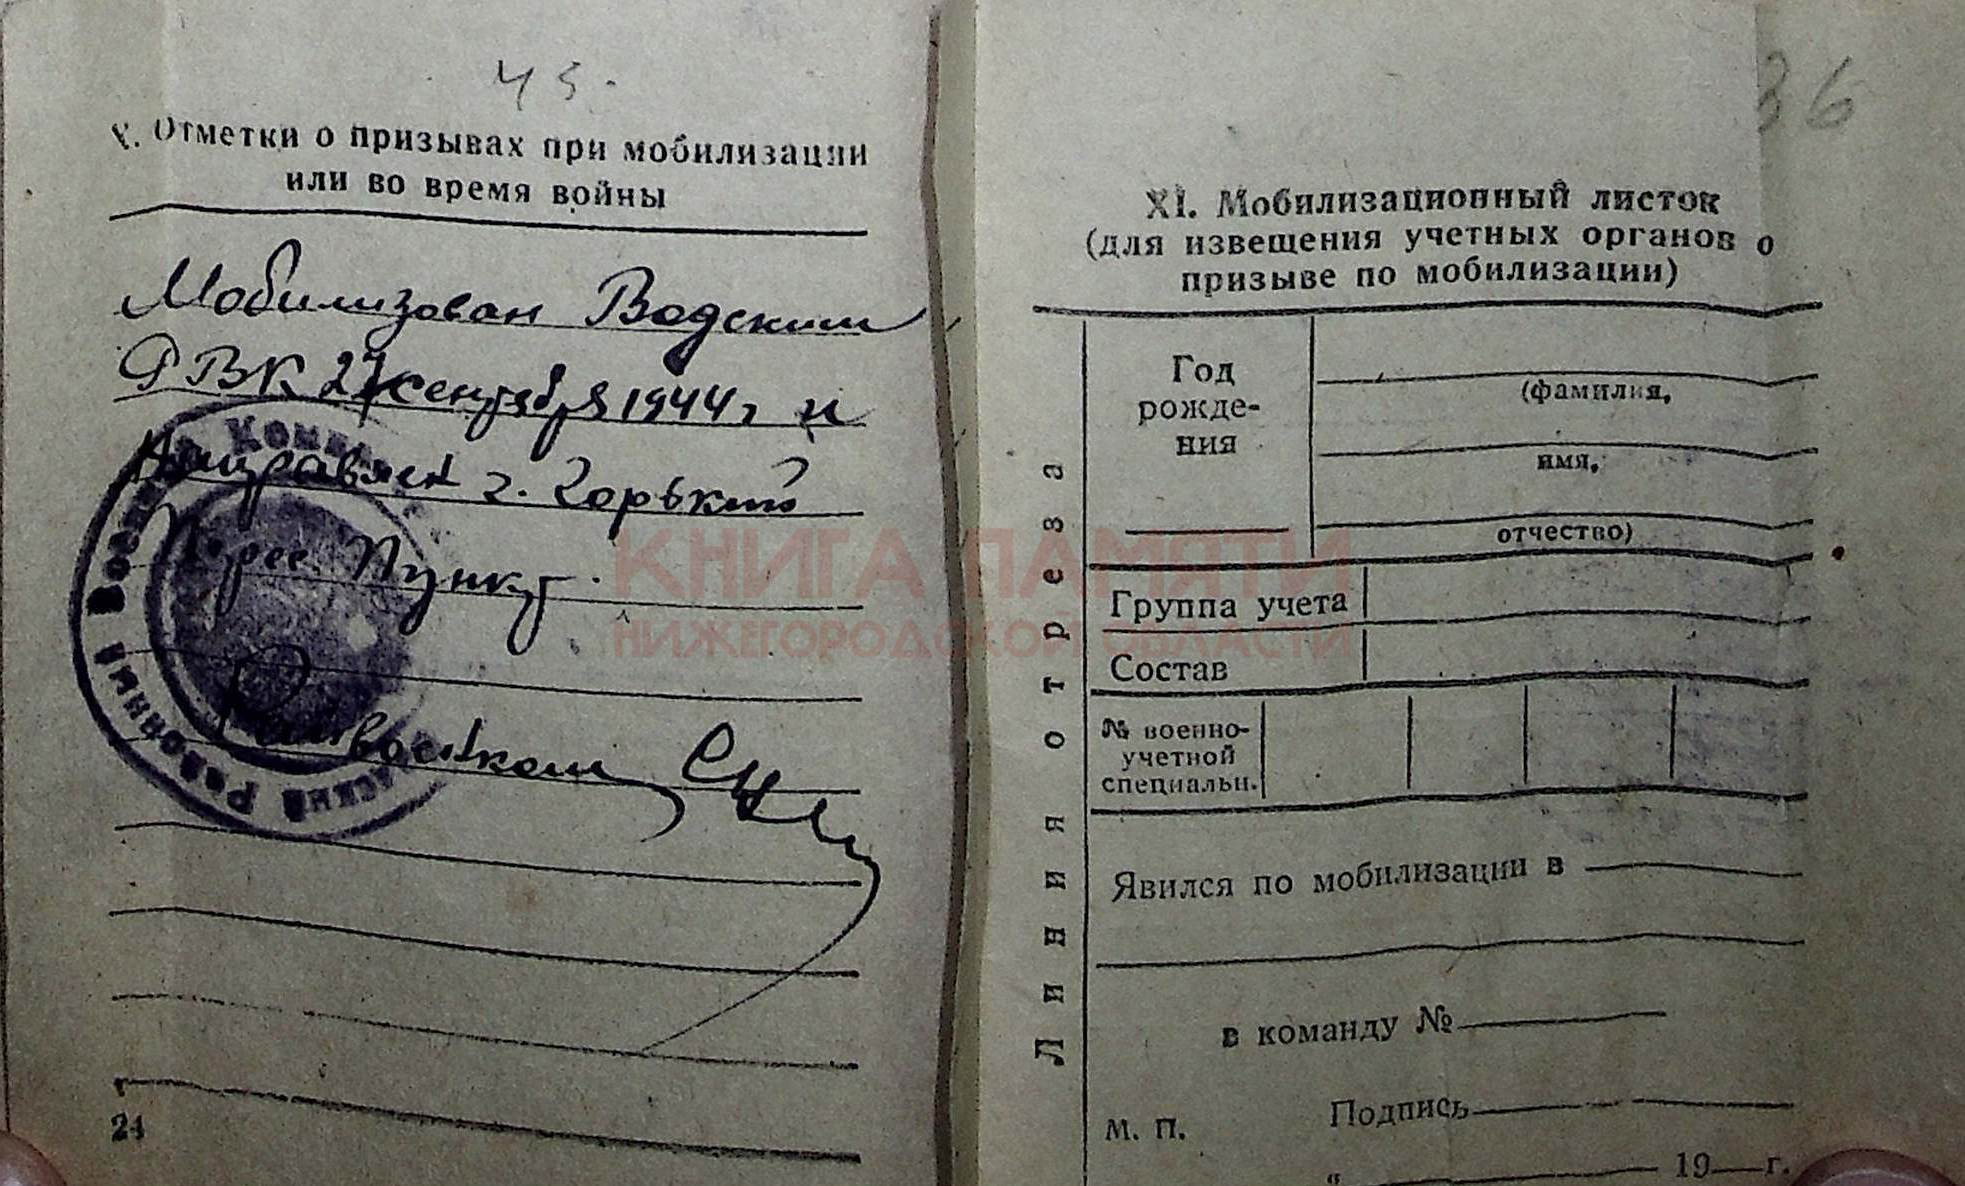 43.
X. Отметки о призывах при мобилизации
или во время войны
Мобилизован Водским
РВК 27 сентября 1944 г и
Направлен г. Горький
Перес. Пункт.
Райвоенком
24
36
XI. Мобилизационный листок
(для извещения учетных органов о
призыве по мобилизации)
Линия отреза
Год
рожде-
ния
(фамилия,
имя,
отчество)
Группа учета
Состав
№ военно-
учетной
специальн.
Явился по мобилизации в
в команду №
М. П.
Подпись
" 19 г.
КНИГА ПАМЯТИ
НИЖЕГОРОДСКОЙ ОБЛАСТИ
Районный Военный